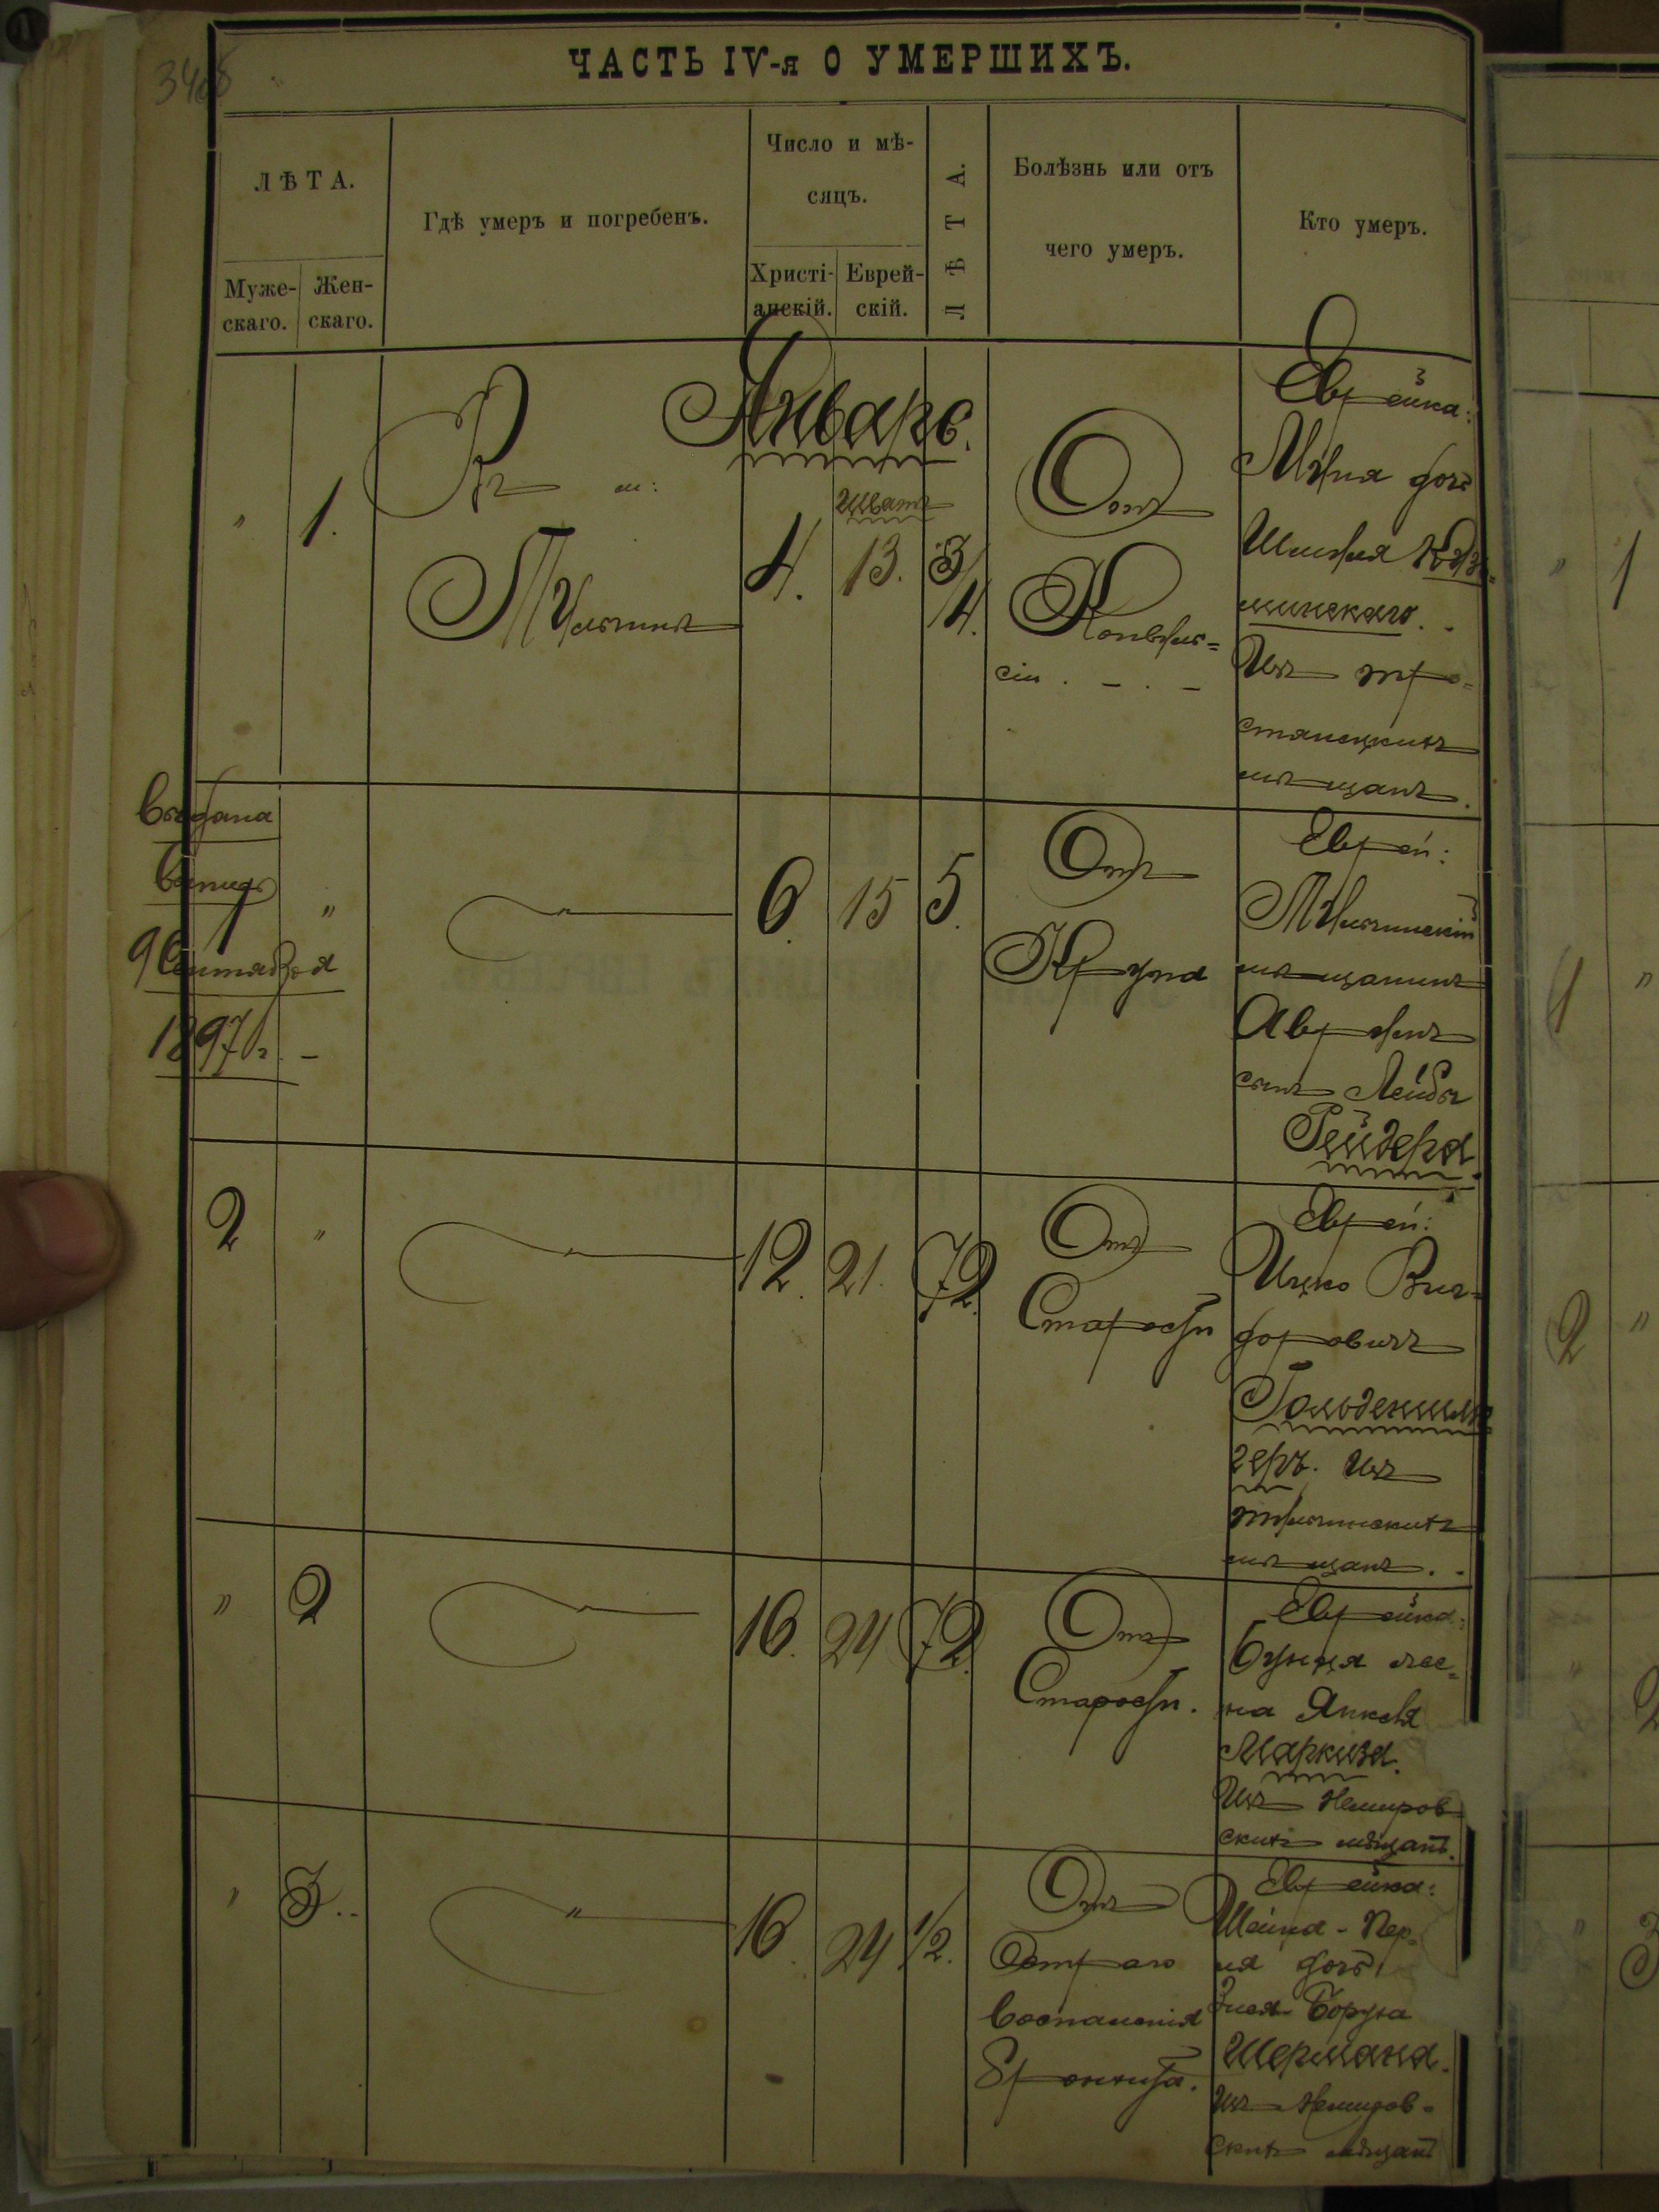 340б
ЧАСТЬ IV-я О УМЕРШИХЪ.
ЛѢТА.
Муже-
скаго.
Жен-
скаго.
Гдѣ умеръ и погребенъ.
Число и мѣ-
сяцъ.
Христі-
анскій.
Еврей-
скій.
ЛѢТА.
Болѣзнь или отъ
чего умеръ.
Кто умеръ.
Январь.
"
1.
Въ м:
Тульчинѣ
4.
Шватъ
13.
3/4.
Отъ
Конвуль=
сіи . - . -
Еврейка:
дочь
Шмуля
минскаго. -
Изъ тро=
стянецкихъ
мѣщанъ.
Выдана
выпись
9 Сентября
1897 г. -
"
"
6.
15
5.
Отъ
Крупа
Еврей:
Тульчинскій
мѣщанинъ
Аврумъ
сынъ Лейбы
Рейдера.
2
"
"
12.
21.
72.
Отъ
Старости
Еврей:
Ицко Виг=
доровичъ
Гольденшлю
геръ. Изъ
тульчинскихъ
мѣщанъ. -
"
2
"
16.
24
72.
Отъ
Старости.
Еврейка:
Бунця же=
на Янкеля
Маркиза.
Изъ Немиров=
скихъ мѣщанъ.
"
3..
"
16
24
1/2.
Отъ
Остраго
воспаленія
бронхита.
Еврейка:
Шейна-Пер=
ля дочь
Зися-Боруха
Шермана.
Изъ Немиров=
скихъ мѣщанъ
"
1
1
"
2
"
"
2
"
3